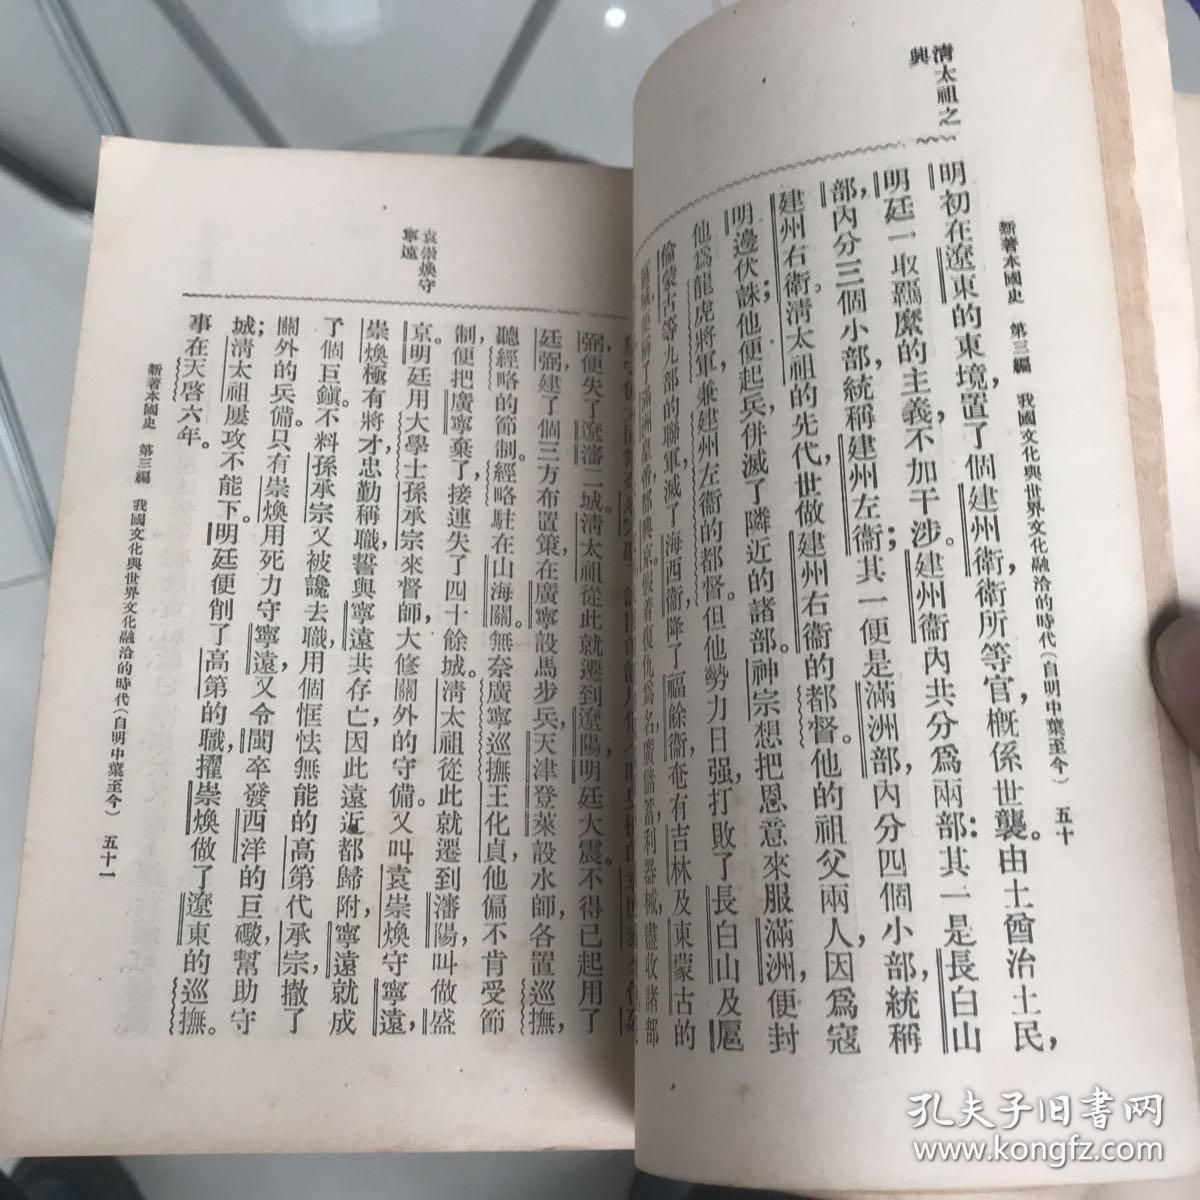 新著本國史　第三編　我國文化與世界文化融洽的時代（自明中葉至今）　五十
清太祖之
興
明初在遼東的東境置了個建州衛，衛所等官，概係世襲。由土酋治土民，
明廷一取羈縻的主義，不加干涉。建州衛內共分爲兩部：其一是長白山
部，內分三個小部，統稱建州左衞；其一便是滿洲部，內分四個小部，統稱
建州右衛。清太祖的先代，世做建州右衞的都督。他的祖父兩人，因爲寇
明邊伏誅，他便起兵併滅了隣近的諸部。神宗想把恩意來服滿洲，便封
他爲龍虎將軍，兼建州左衞的都督。但他勢力日强，打敗了長白山及扈
倫蒙古等九部的聯軍，滅了海西衞，降了福餘衞，奄有吉林及東蒙古的
便稱了滿洲皇帝，都興京。假着復仇爲名，廣儲蓄，利器械，盡收諸部
袁崇煥守
寧遠
弼，便失了遼瀋二城。清太祖從此就遷到遼陽。明廷大震，不得已起用了
廷弼，建了個三方布置策，在廣寧設馬步兵，天津登萊設水師，各置巡撫，
聽經略的節制。經略駐在山海關。無奈廣寧巡撫王化貞，他偏不肯受節
制，便把廣寧棄了，接連失了四十餘城。清太祖從此就遷到瀋陽，叫做盛
京。明廷用大學士孫承宗來督師，大修關外的守備。又叫袁崇煥守寧遠，
崇煥極有將才，忠勤稱職，誓與寧遠共存亡，因此遠近都歸附，寧遠就成
了個巨鎮。不料孫承宗又被讒去職，用個恇怯無能的高第代承宗，撤了
關外的兵備。只有崇煥用死力守寧遠，又令閩卒發西洋的巨礮，幫助守
城；清太祖屢攻不能下。明廷便削了高第的職，擢崇煥做了遼東的巡撫。
事在天啓六年。
新著本國史　第三編　我國文化與世界文化融洽的時代（自明中葉至今）　五十一
孔夫子旧书网
www.kongfz.com